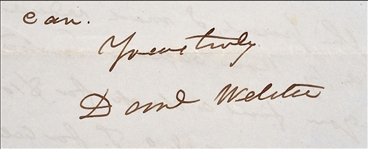 can.
Yours truly
Danl Webster